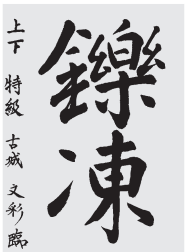 鑠凍
上下 特級 古城 文彩 臨